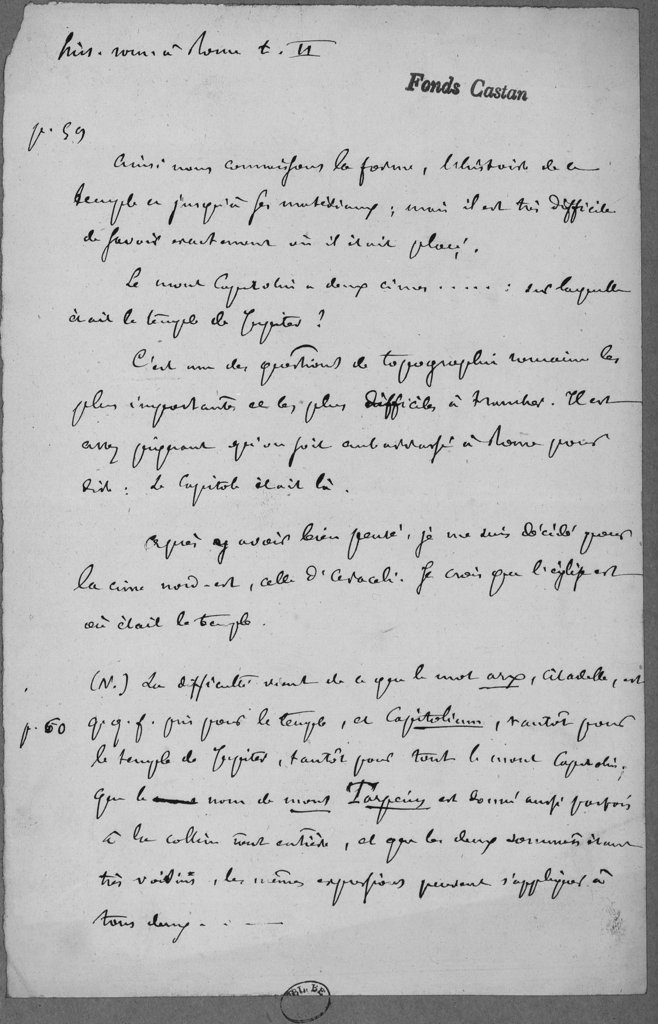 hist. rom. à Rome t. II
Fonds Castan
p. 59
Ainsi nous connaissons la forme, l'histoire de ce
temple et jusqu'à ses matériaux ; mais il est très difficile
de savoir exactement où il était placé.
Le mont Capitolin a deux cimes ..... : sur laquelle
était le temple de Jupiter ?
C'est une des questions de topographie romaine les
plus importantes et les plus difficiles à trancher. Il est
assez piquant qu'on soit embarrassé à Rome pour
dire : Le Capitole était là.
Après y avoir bien pensé, je me suis décidé pour
la cime nord-est, celle d'Araceli. Je crois que l'église est
où était le temple.
(N.) La difficulté vient de ce que le mot arx, citadelle, est
p. 60
q.q.f. pris pour le temple, et Capitolium, tantôt pour
le temple de Jupiter, tantôt pour tout le mont Capitolin,
que le nom de mons Tarpeius est donné aussi parfois
à la colline tout entière, et que les deux sommets étant
très voisins, les mêmes expressions peuvent s'appliquer à
tous deux . . . —
BL. BE